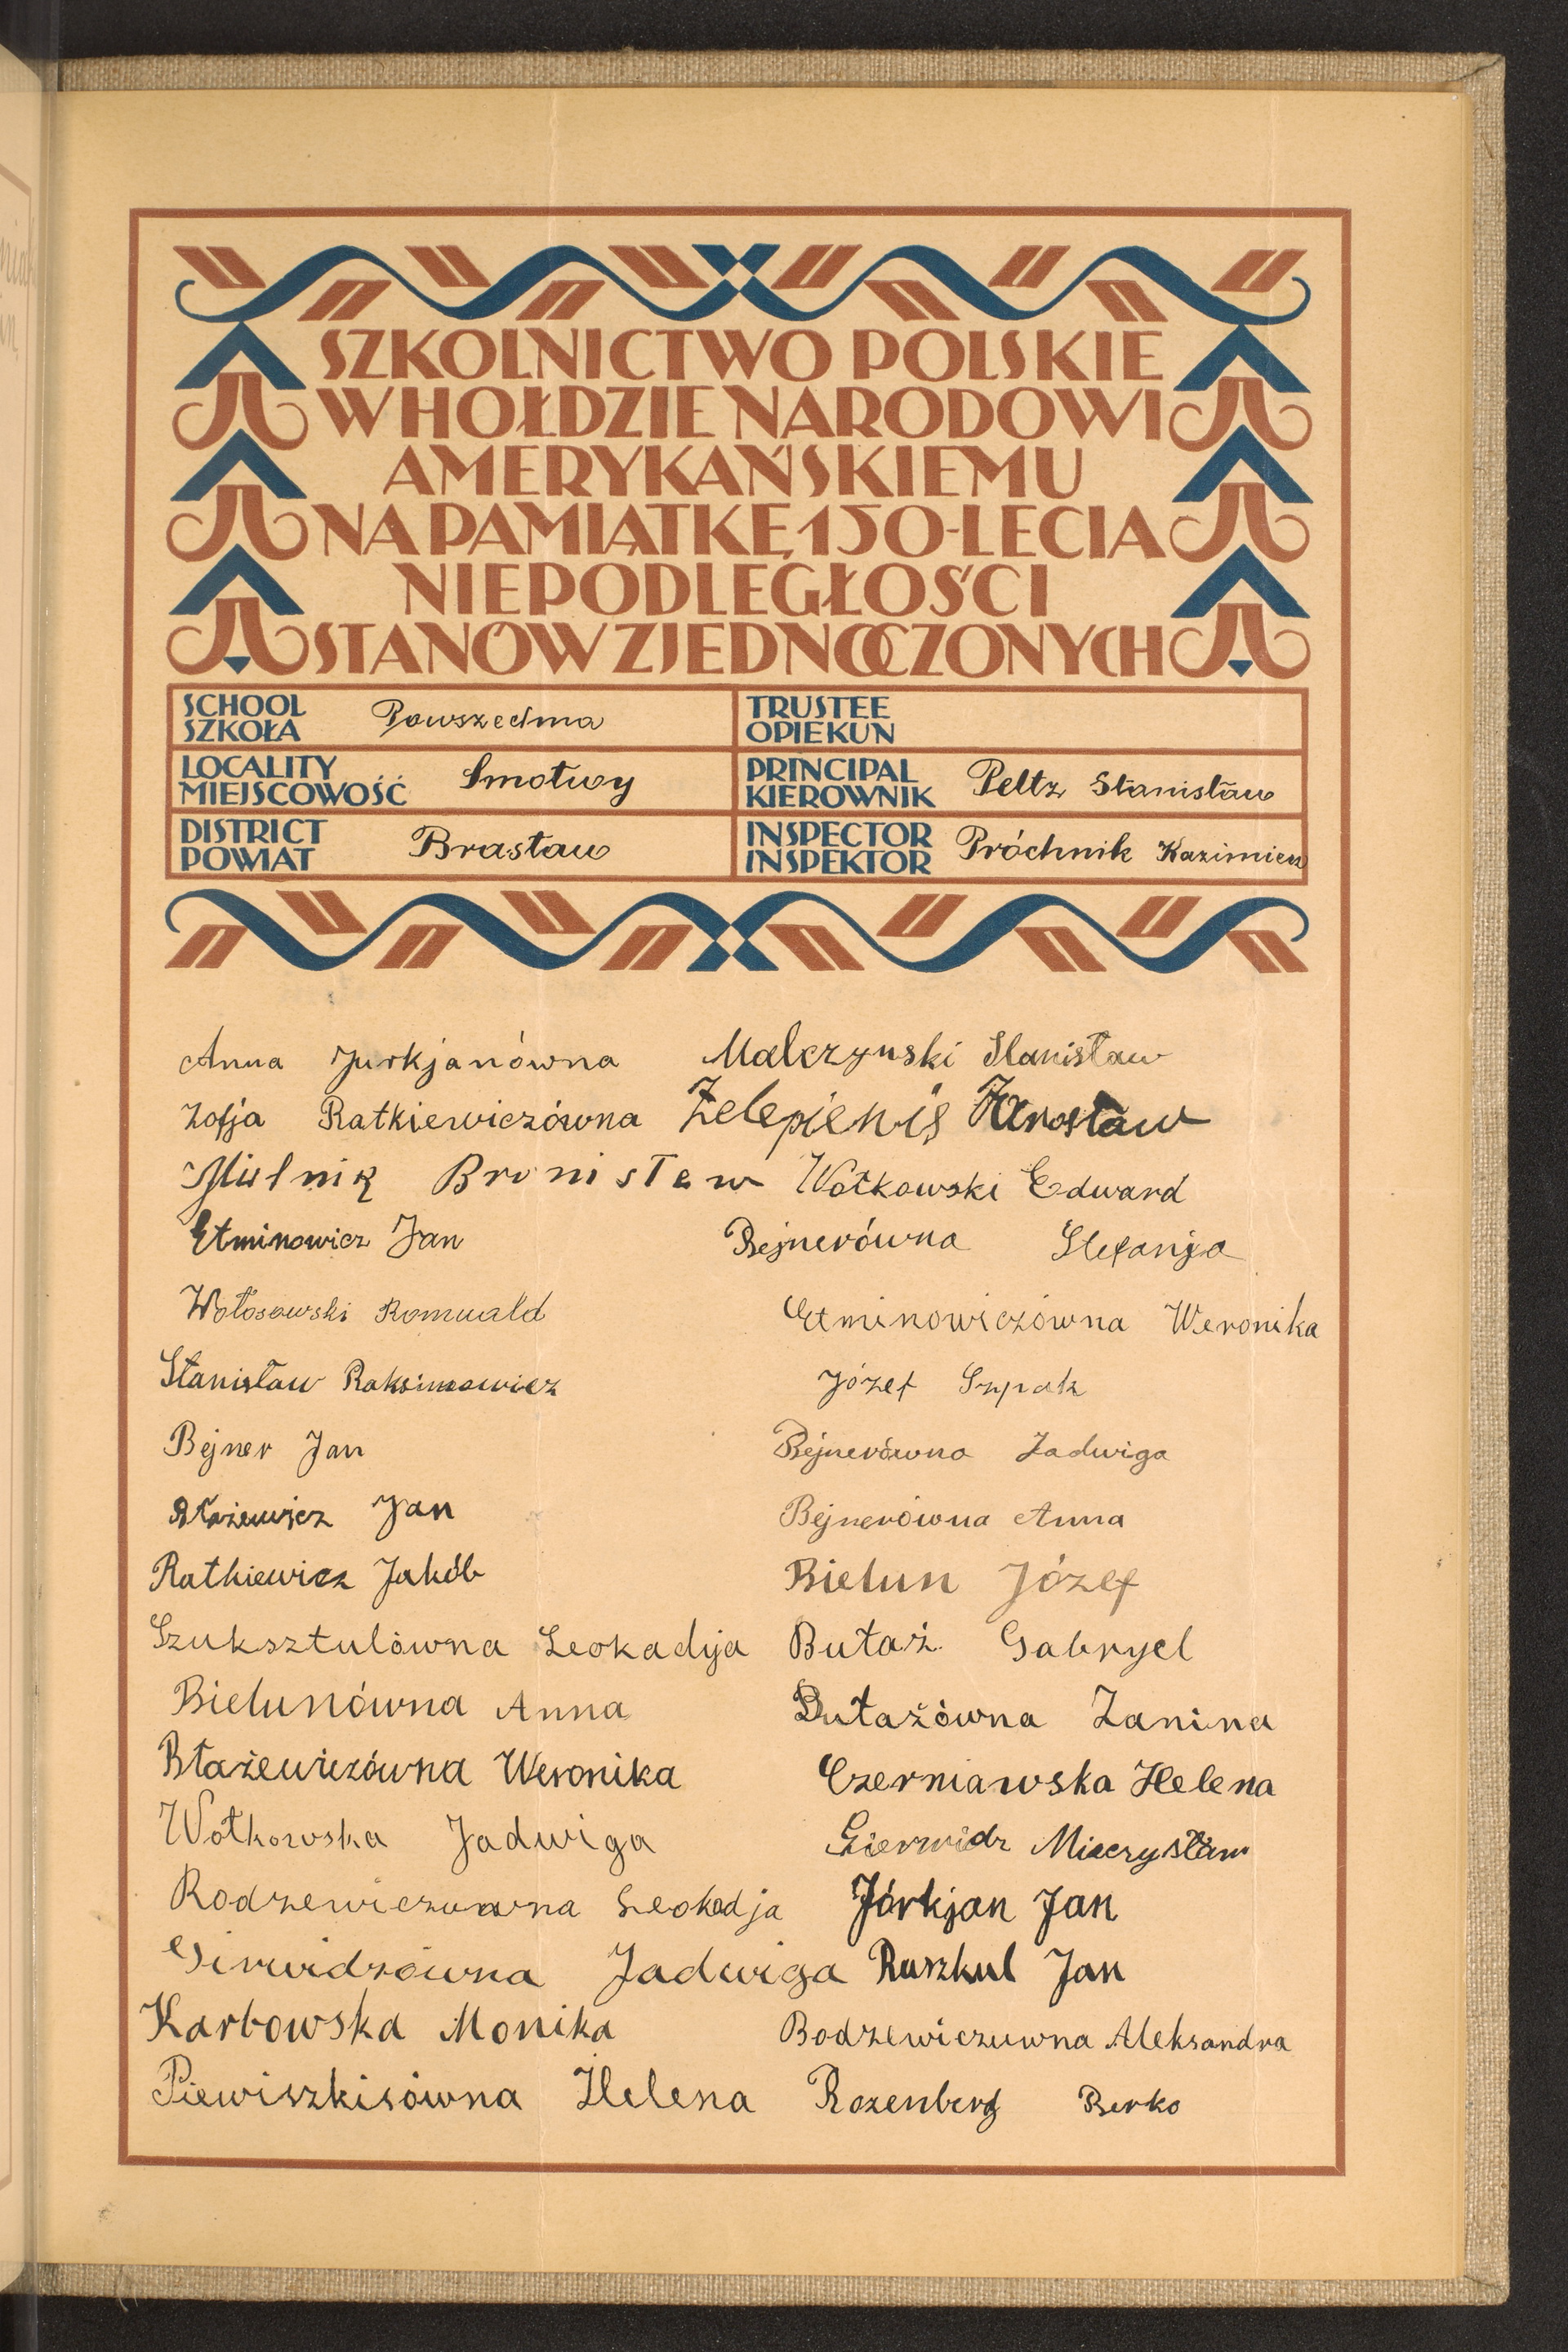 SZKOLNICTWO POLSKIE
W HOŁDZIE NARODOWI
AMERYKAŃSKIEMU
NA PAMIĄTKĘ 150-LECIA
NIEPODLEGŁOŚCI
STANÓW ZJEDNOCZONYCH
SCHOOL
SZKOŁA Powszechna
TRUSTEE
OPIEKUN
LOCALITY
MIEJSCOWOŚĆ Smołwy
PRINCIPAL
KIEROWNIK Peltz Stanisław
DISTRICT
POWIAT Brasław
INSPECTOR
INSPEKTOR Próchnik Kazimierz
Anna Jurkjanówna Malczynski Stanisław
Zofja Ratkiewiczówna Żelepienis Jarosław
Bronisław Wołkowski Edward
Etminowicz Jan Bejnerówna Stefanja
Wołosowski Romuald Etminowiczówna Weronika
Stanisław Raksimowicz Józef Szpak
Bejner Jan Bejnerówna Jadwiga
Błażewicz Jan Bejnerówna Anna
Ratkiewicz Jakób Bielun Józef
Szuksztulówna Leokadija Butaż Gabryel
Bielunówna Anna Butażówna Janina
Błażewiczówna Weronika Czerniawska Helena
Wołkowska Jadwiga Gierwidz Mieczysław
Rodzewiczuwna Leokadja Jórkjan Jan
Girwidzówna Jadwiga Ruszkul Jan
Karbowska Monika Bodzewiczuwna Aleksandra
Piewiszkisówna Helena Rozenberg Berko